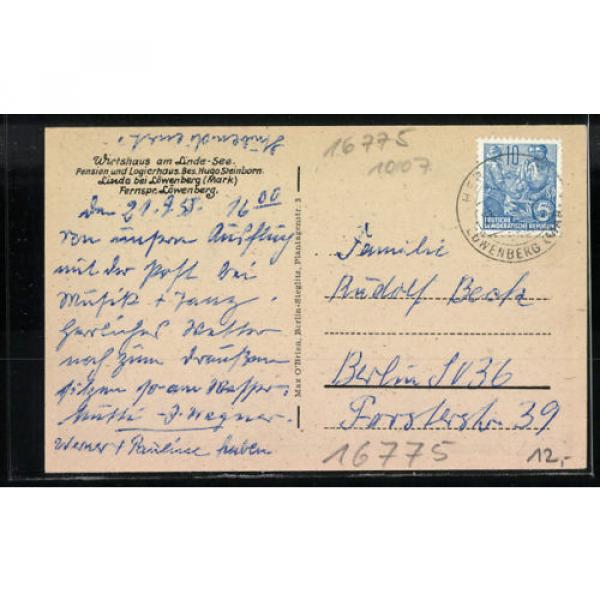 Wirtshaus am Linde-See.
Pension und Logierhaus. Bes. Hugo Steinborn.
Linde bei Löwenberg (Mark)
Fernspr. Löwenberg.
den 21.9.55. 16 00
Von unserm Ausflug
mit der Post bei
Musik + Tanz.
Herrliches Wetter
noch zum draußen
sitzen so am Wasser.
Mutti - J. Wegner.
Werner + Pauline haben
Max O'Brien, Berlin-Steglitz, Plantagenstr. 3
16775
10107
10
DEUTSCHE
DEMOKRATISCHE REPUBLIK
5
LÖWENBERG
Familie
Rudolf Beck
Berlin SO 36
Forsterstr. 39
16775
12,-